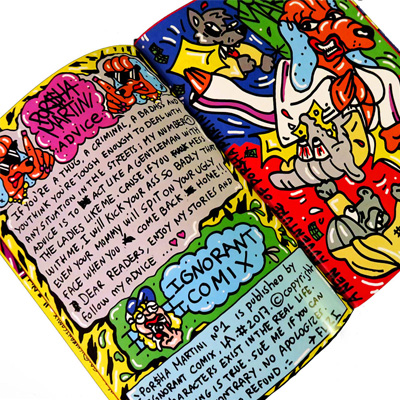 PORSHA
MARTINI
ADVICE
IF YOU'RE A THUG, A CRIMINAL, A BADASS AND
YOU THINK YOU'RE TOUGH ENOUGH TO DEAL WITH
ANY SITUATION IN THE STREETS, MY NUMBER 1
ADVICE IS TO ACT LIKE A GENTLEMAN WITH
THE LADIES LIKE ME. CAUSE IF YOU MESS
WITH ME I WILL KICK YOUR ASS SO BADLY THAT
EVEN YOUR MOMMY WILL SPIT ON YOUR UGLY
FACE WHEN YOU COME BACK HOME!
DEAR READER, ENJOY MY STORIES AND
FOLLOW MY ADVICE
IGNORANT
COMIX
PORSHA MARTINI No1 IS PUBLISHED BY
IGNORANT COMIX, LA #2017 © COPYRIGHT
CHARACTERS EXIST IN THE REAL LIFE.
IS TRUE. SUE ME, IF YOU CAN
CONTRARY. NO APOLOGIZES
REFUND.
A NEW ADVENTURE OF